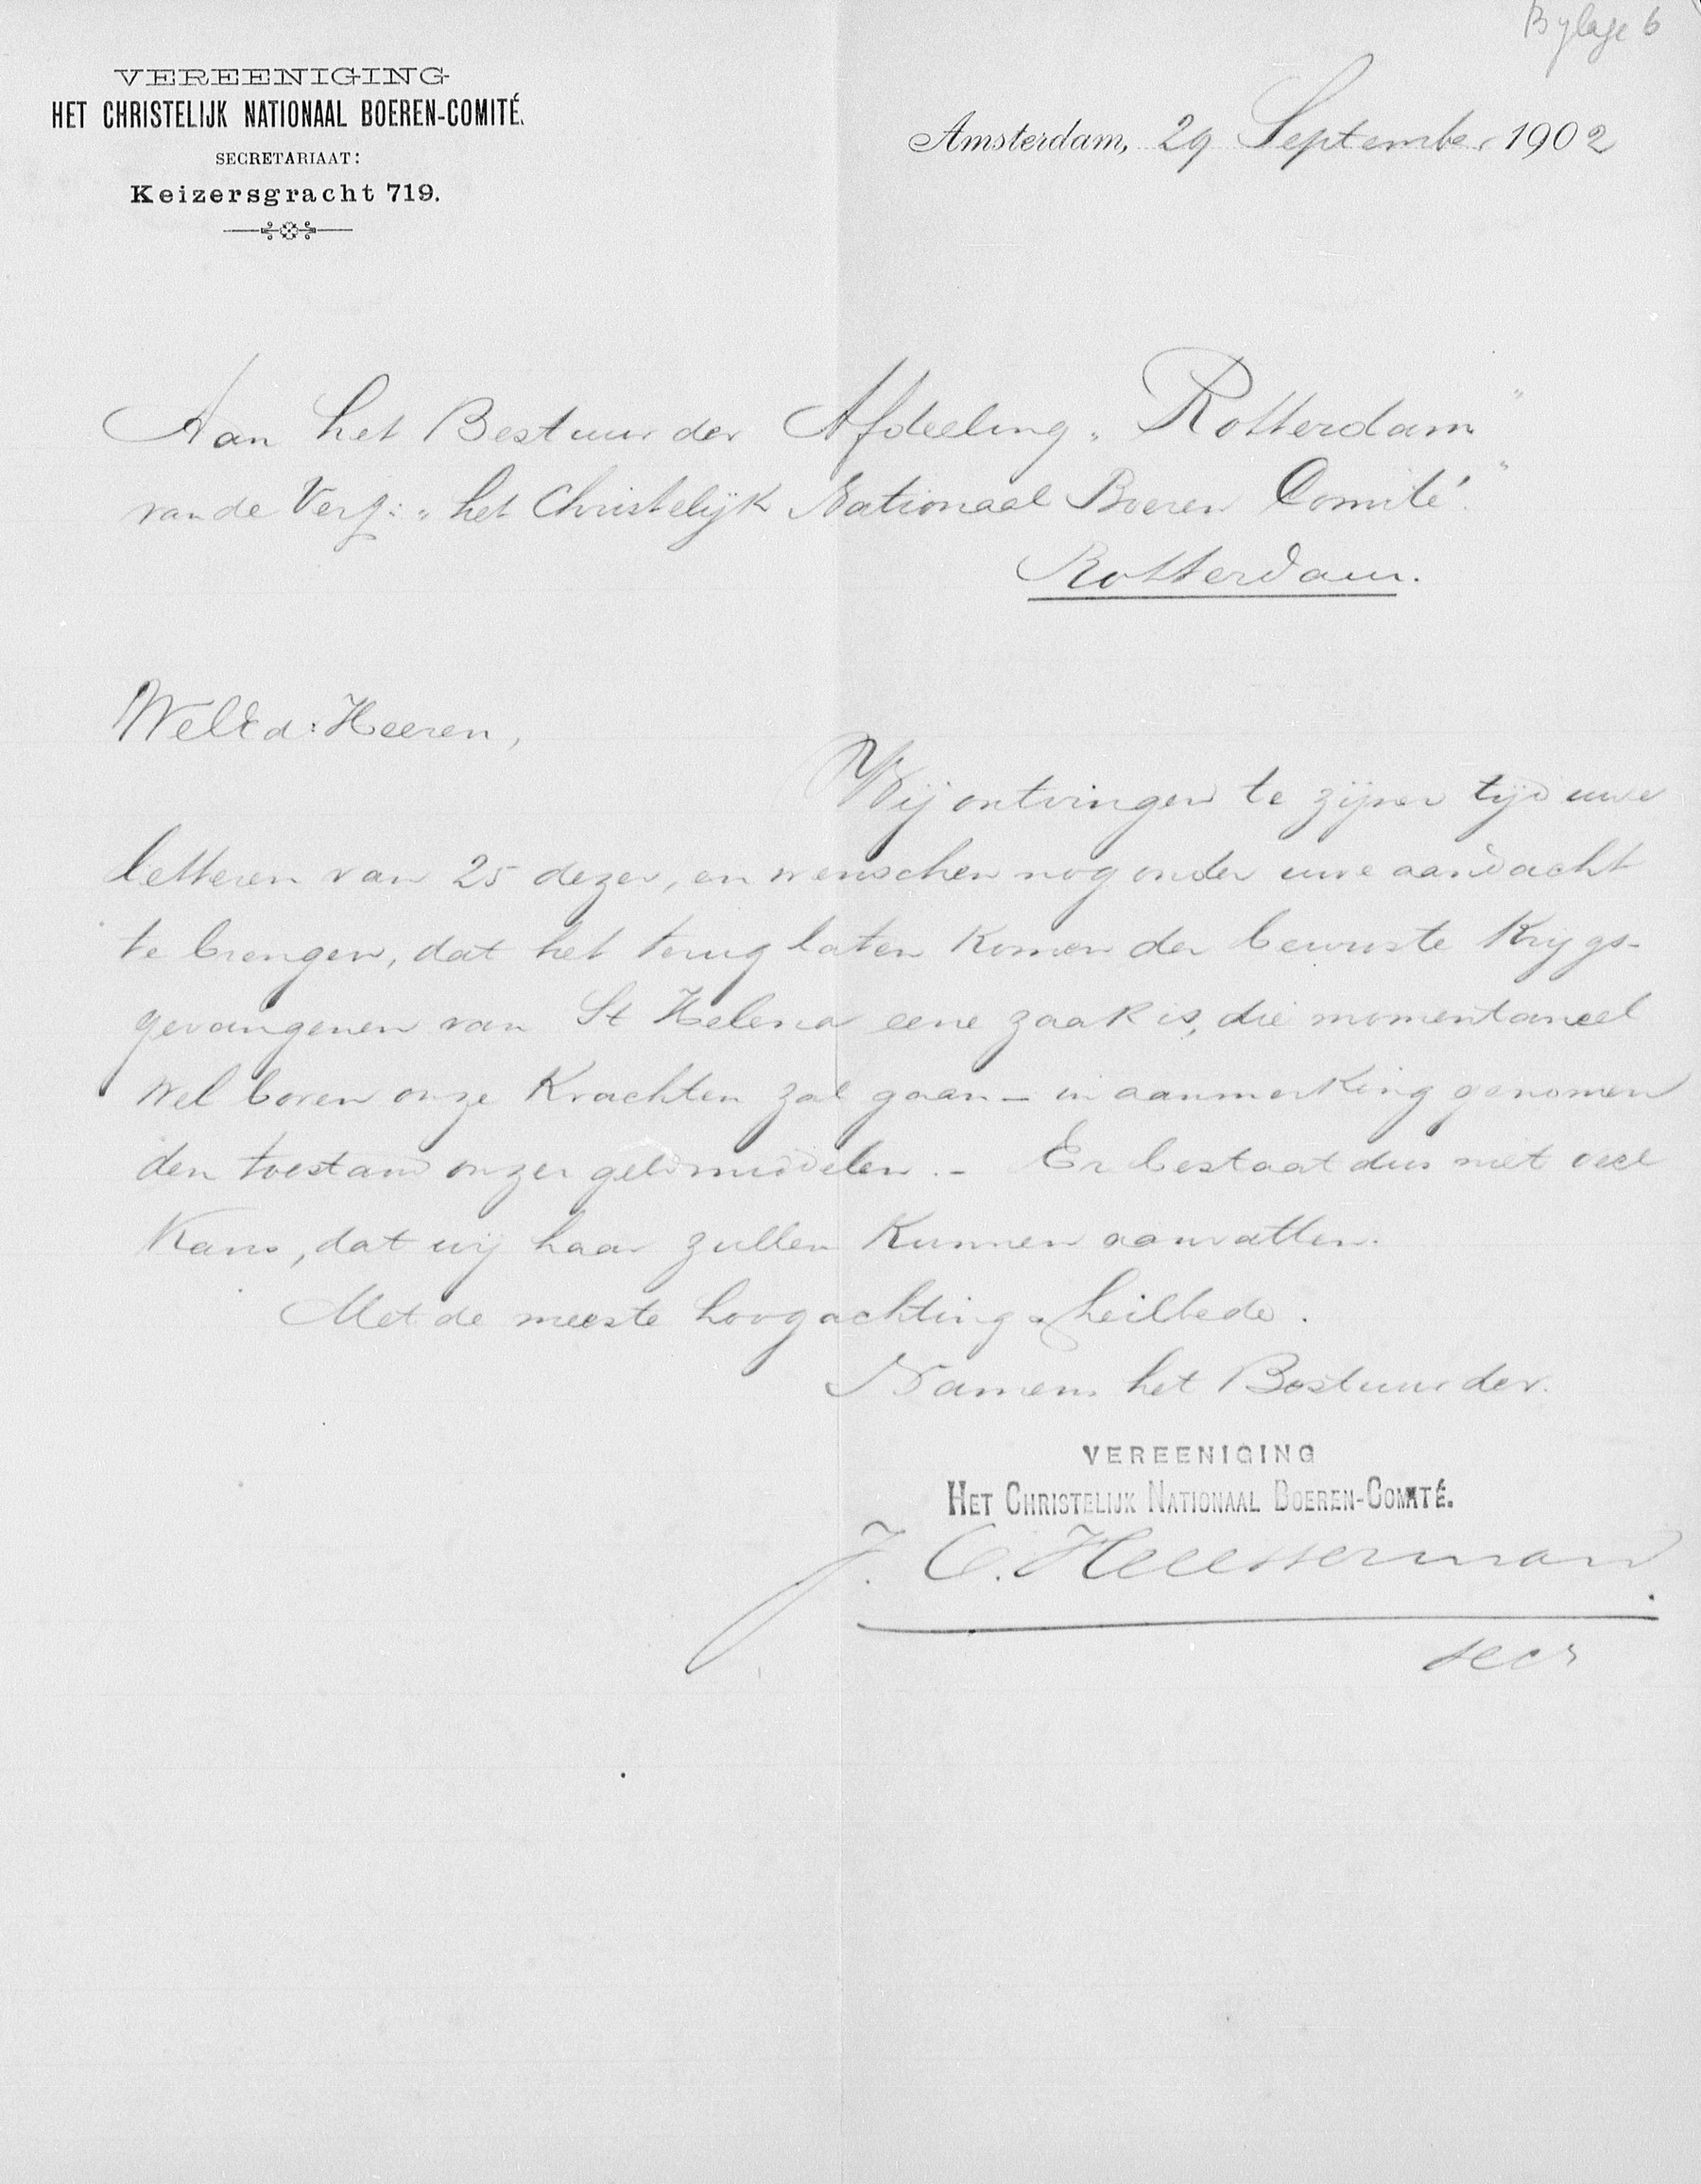 Bylage 6
VEREENIGING
HET CHRISTELIJK NATIONAAL BOEREN-COMITÉ.
SECRETARIAAT:
Keizersgracht 719.
Amsterdam, 29 September 1902
Aan het Bestuur der Afdeeling „Rotterdam”
van de Verg: „het Christelijk Nationaal Boeren Comité”
Rotterdam.
WelEd: Heeren,
Wij ontvingen te zijner tijd uwe
letteren van 25 dezer, en wenschen nog onder uwe aandacht
te brengen, dat het terug laten komen der bewuste Krygs-
gevangenen van St Helena eene zaak is, die momentaneel
wel boven onze Krachten zal gaan – in aanmerking genomen
den toestand onzer geldmiddelen. – Er bestaat dus niet veel
Kans, dat wij haar zullen Kunnen aanvatten.
Met de meeste hoogachting & heilbede.
Namens het Bestuur der.
VEREENIGING
HET CHRISTELIJK NATIONAAL BOEREN-COMITÉ.
J. C.
secr